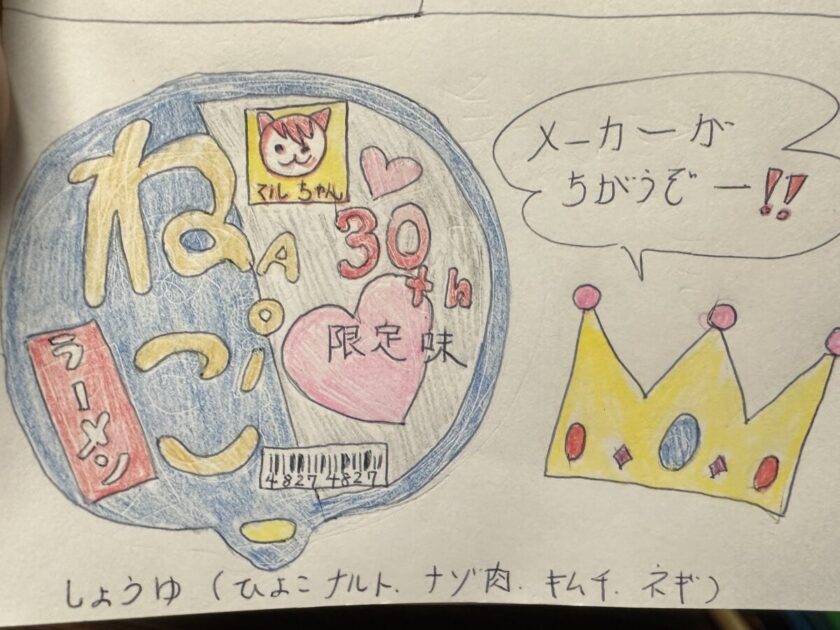 ねこ
マルちゃん
30th
限定味
ラーメン
4827 4827
メーカーが
ちがうぞー!!
しょうゆ(ひよこナルト、ナゾ肉、キムチ、ネギ)